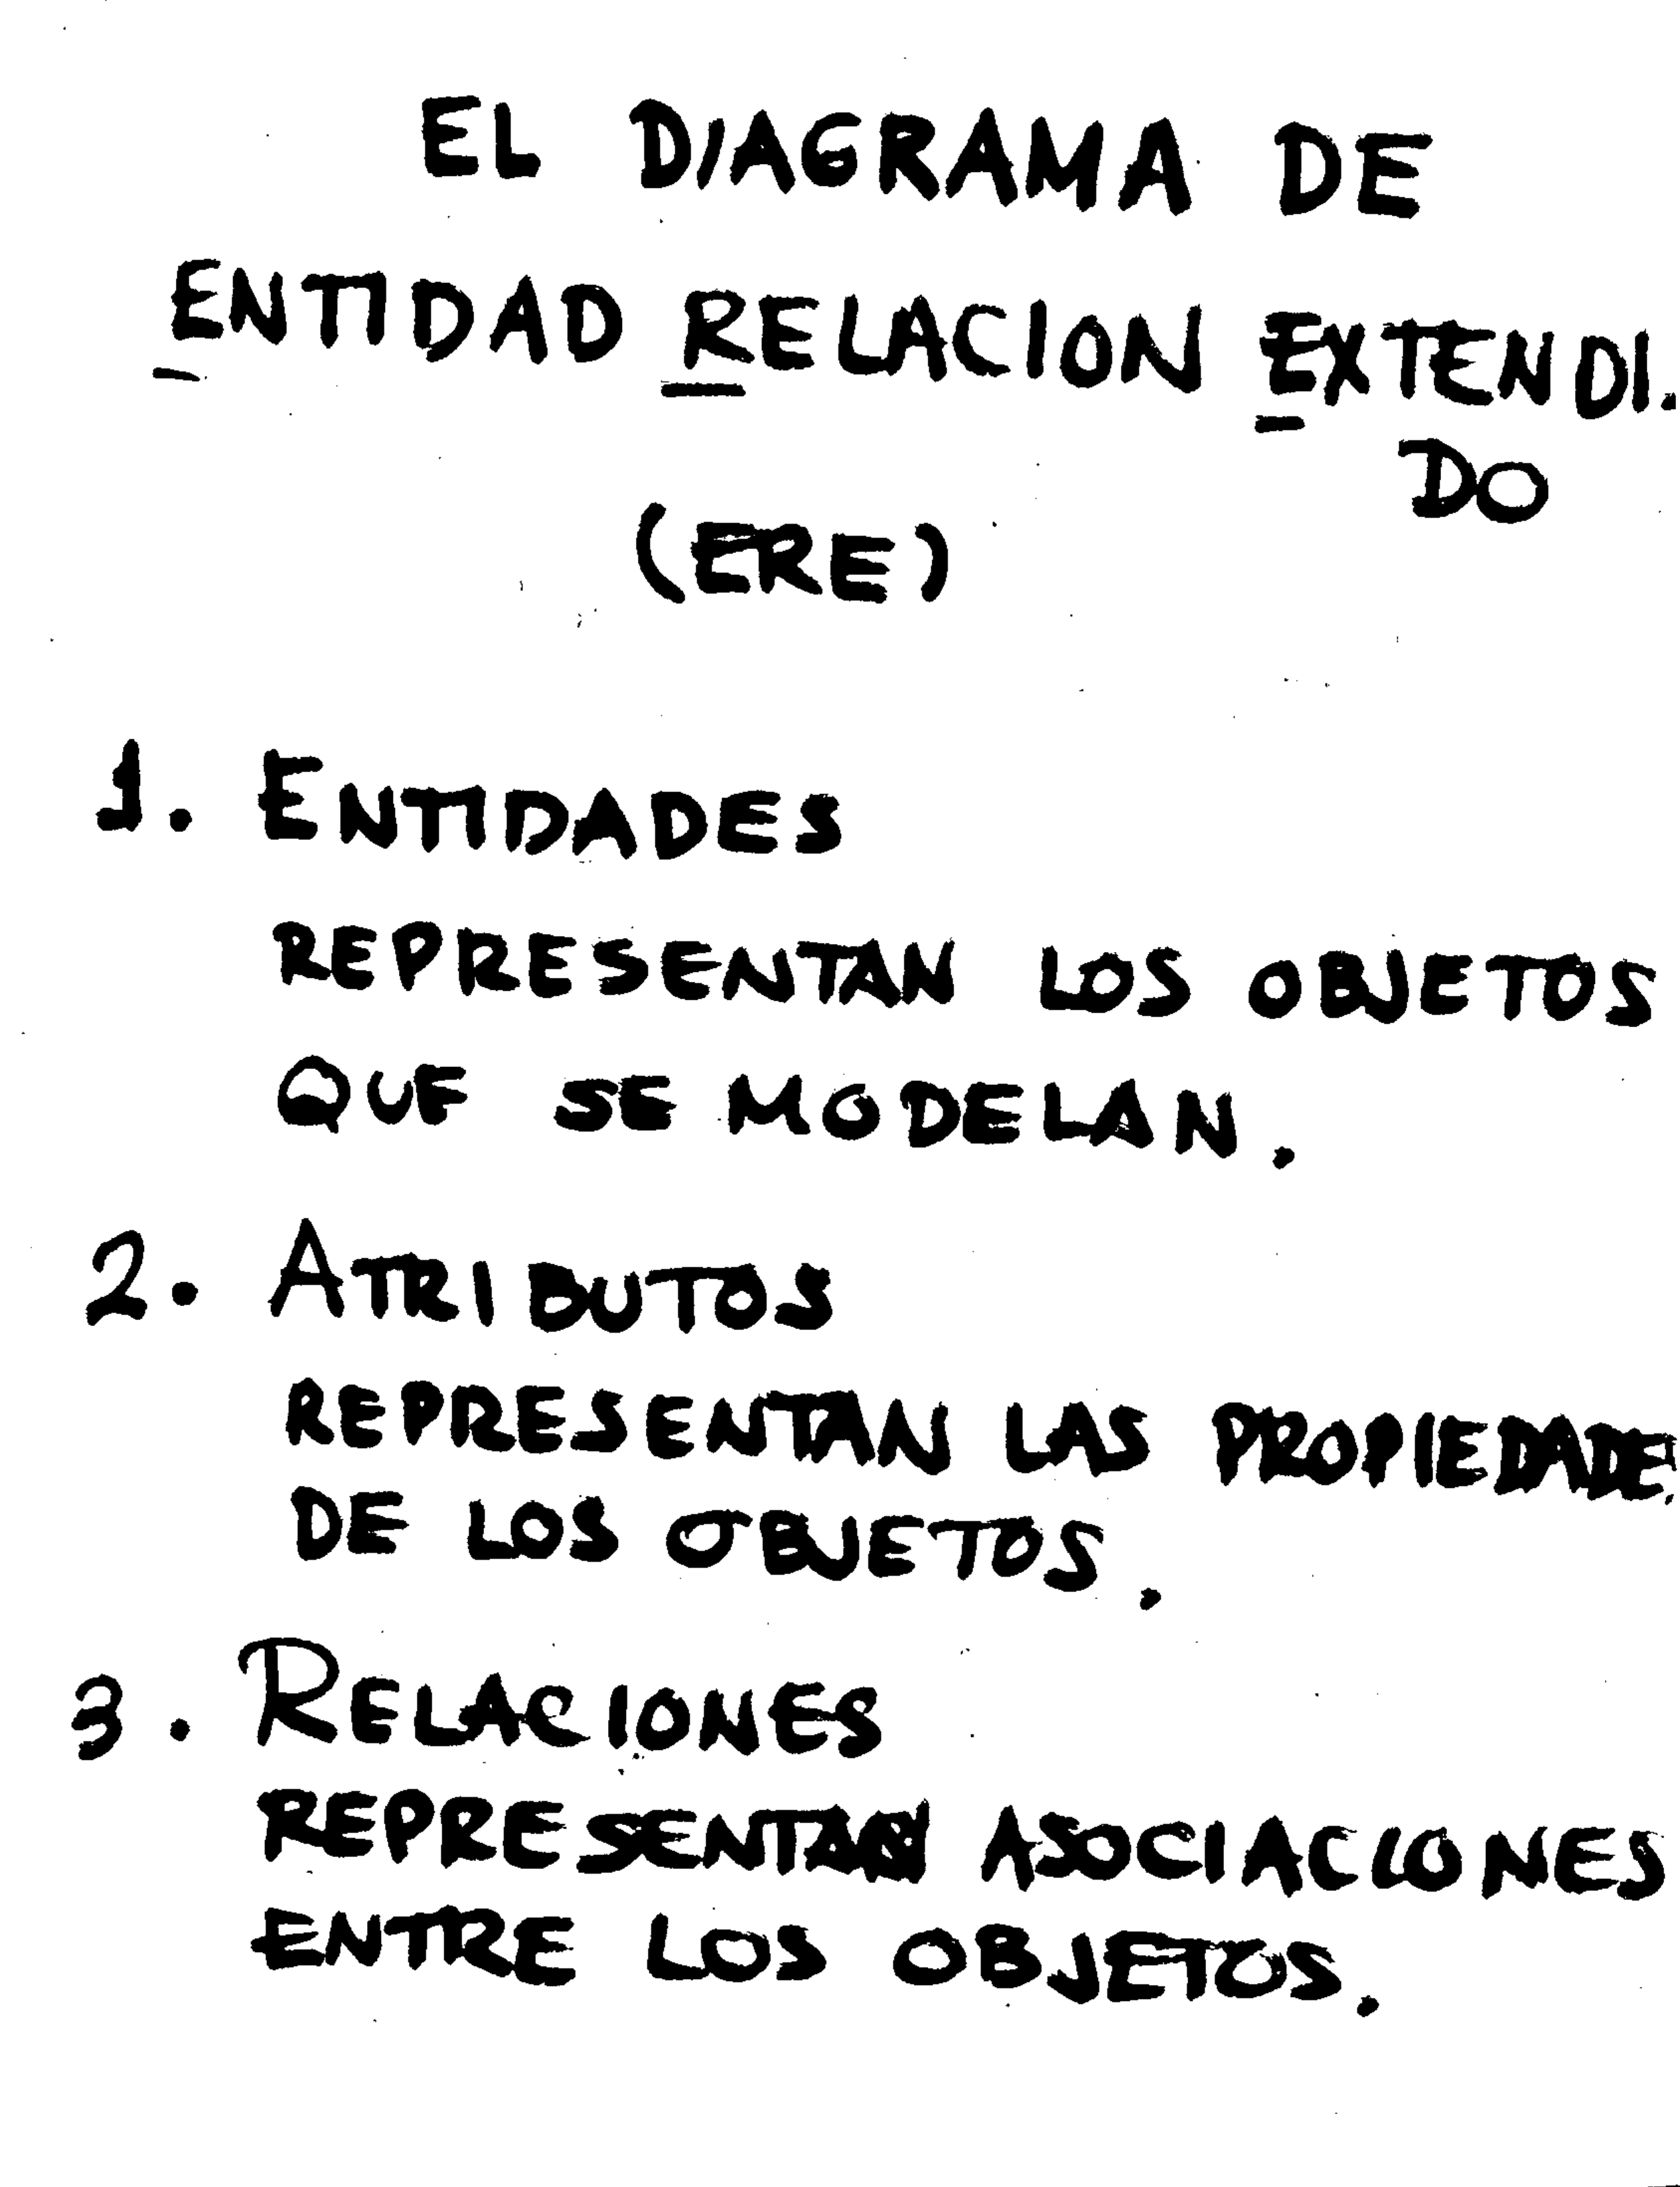 EL DIAGRAMA DE
ENTIDAD RELACION EXTENDI.
DO
(ERE)
1. ENTIDADES
REPRESENTAN LOS OBJETOS
QUE SE MODELAN.
2. ATRIBUTOS
REPRESENTAN LAS PROPIEDADES
DE LOS OBJETOS.
3. RELACIONES
REPRESENTAN ASOCIACIONES
ENTRE LOS OBJETOS.